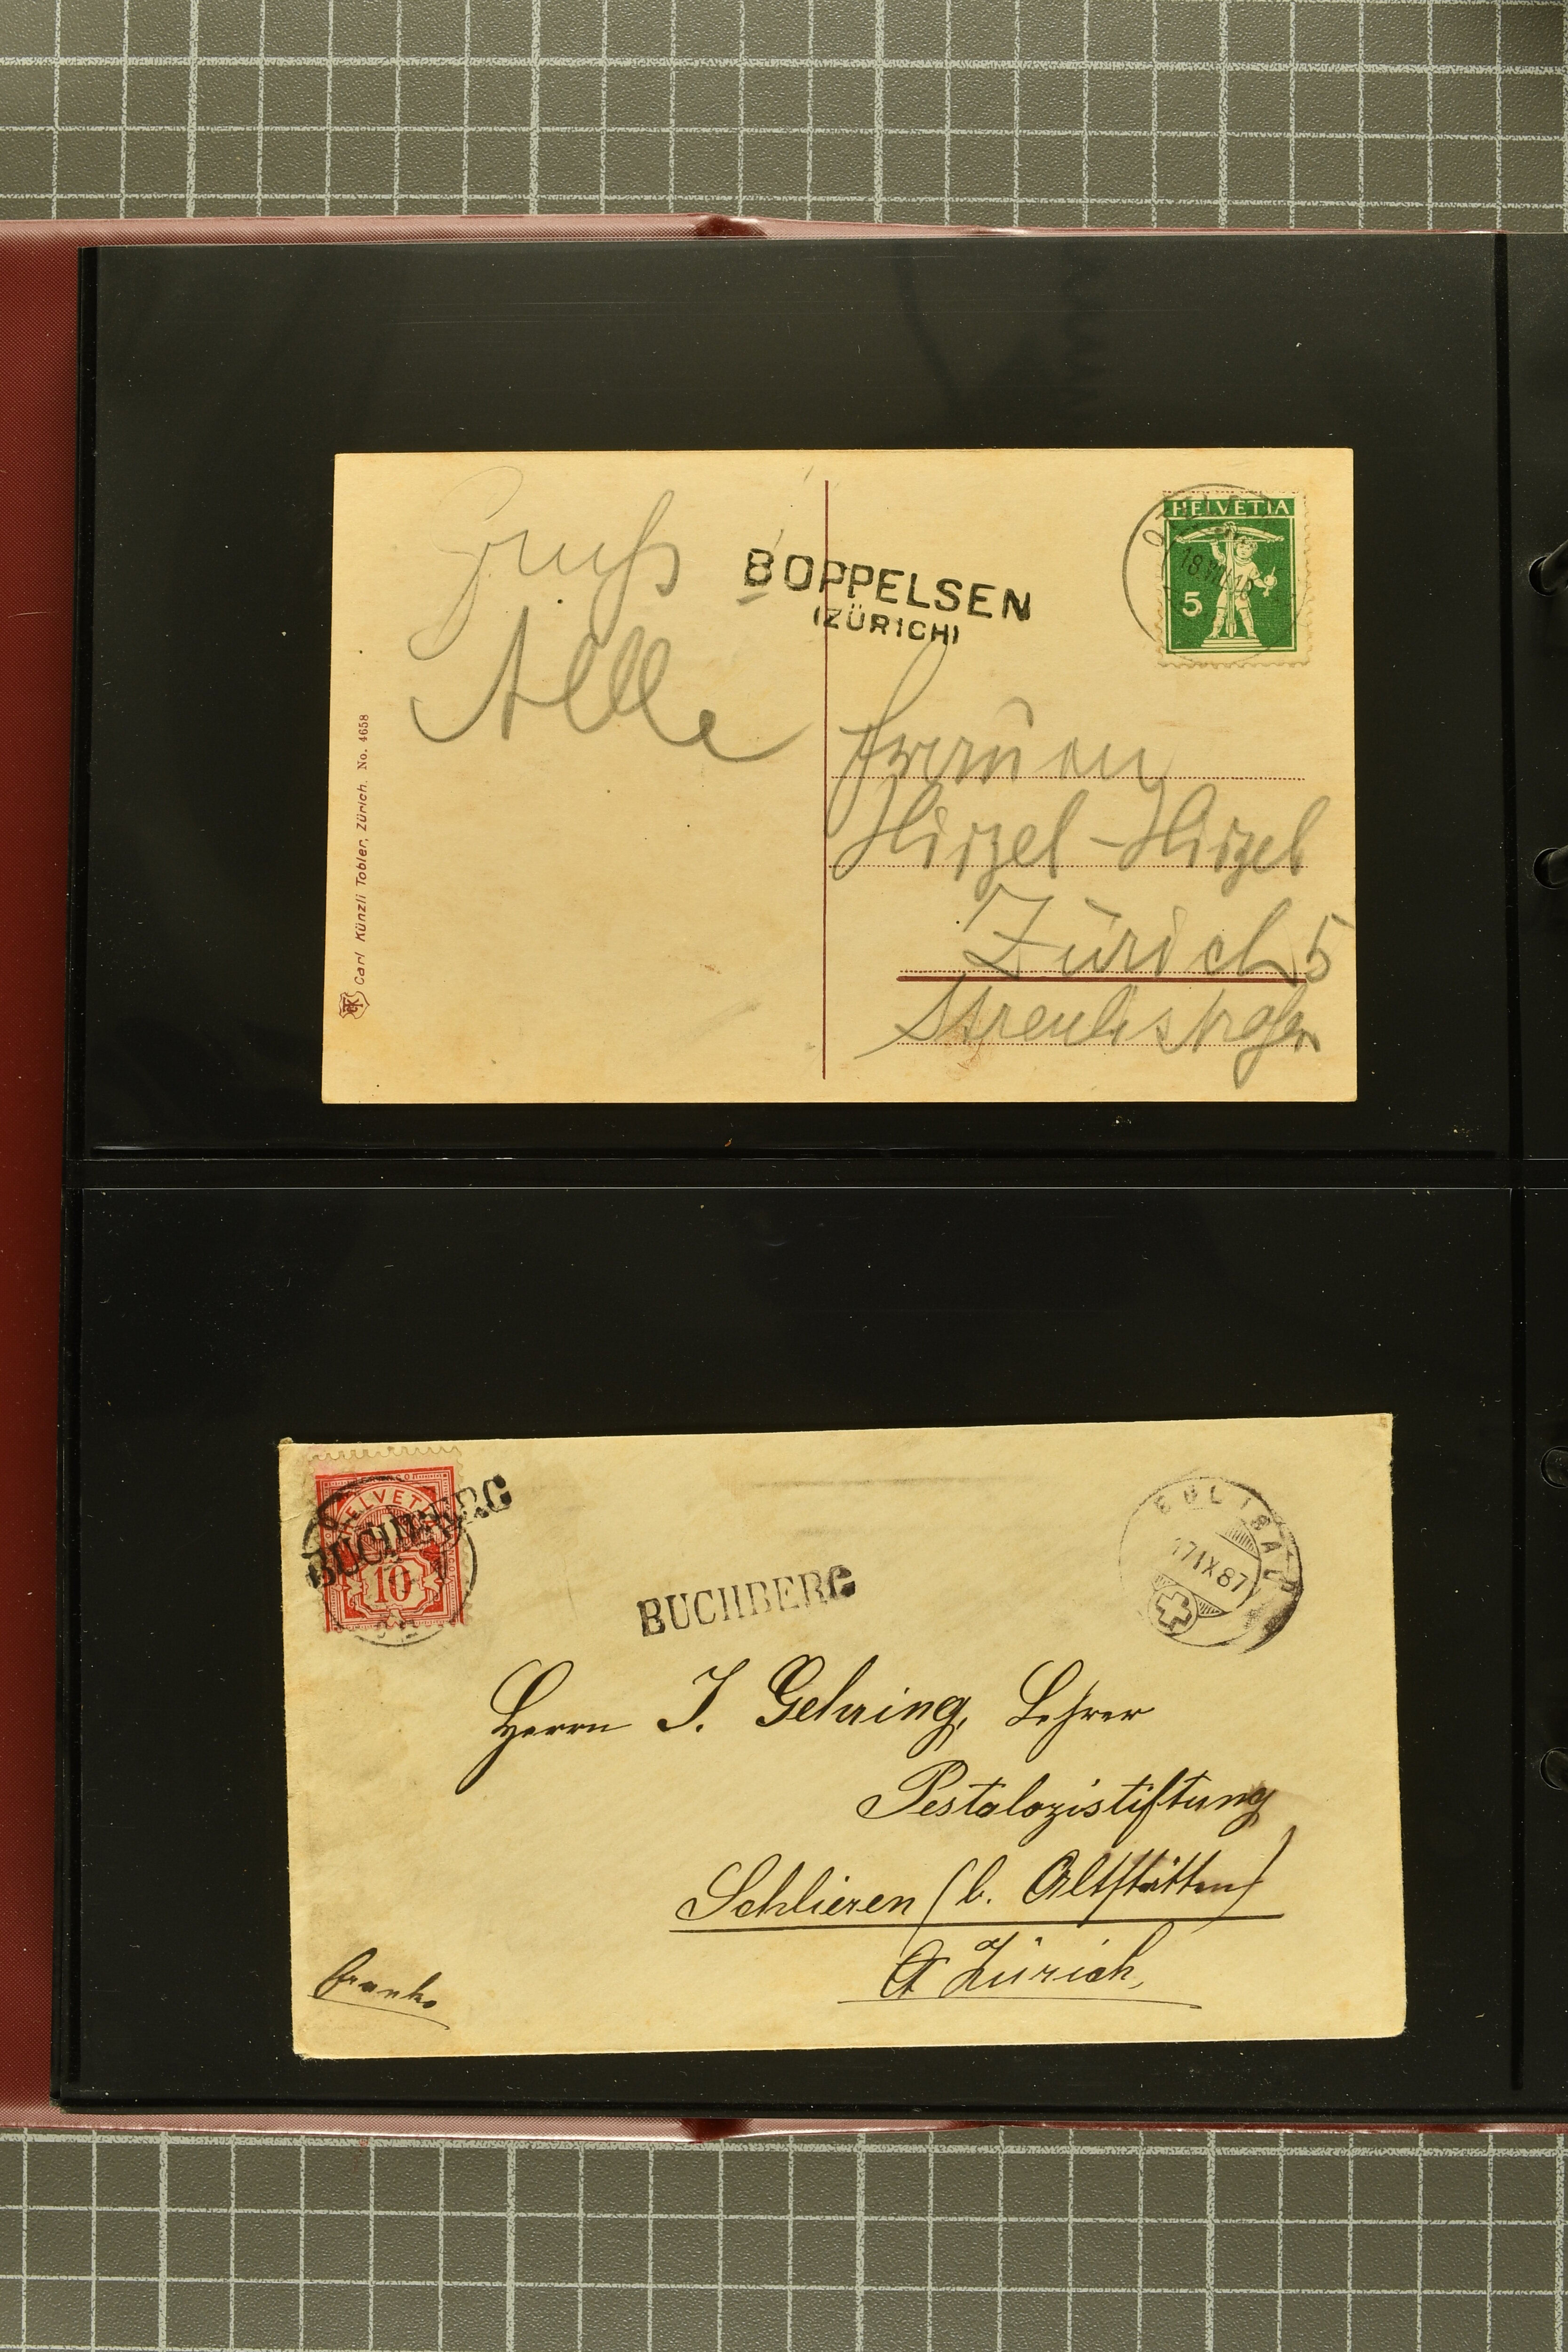 Gruß
Alle
BOPPELSEN
(ZÜRICH)
HELVETIA
5
Carl Künzli Tobler, Zürich. No. 4658
Frauen
Hirzel-Hirzel
Zürich 5
HELVETIA
10
BUCHBERG
BUCHBERG
EGLISAU
17 IX 87
Herrn J. Gehring, Lehrer
Pestalozistiftung
Schlieren (b. Altstätten)
Ct Zürich
Franko